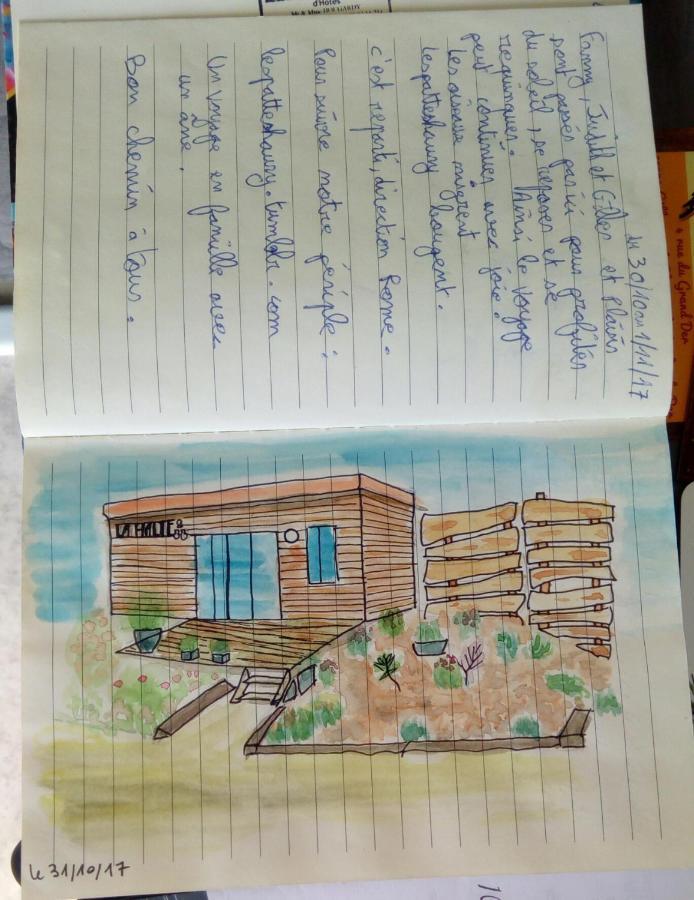 du 30/10 au 1/11/17
Fanny, Judith et Gilles et Plum's
sont passés par ici pour profiter
du soleil, se reposer et se
requinquer. Ainsi le voyage
peut continuer avec joie !
Les oiseaux migrent
Lespatteshaury bougent.
c'est reparti, direction Rome.
Pour suivre notre périple :
lespatteshaury.tumblr.com
Un voyage en famille avec
un âne.
Bon chemin à tous.
LA HALTE
le 31/10/17
d'Hôtes
4 rue du Grand